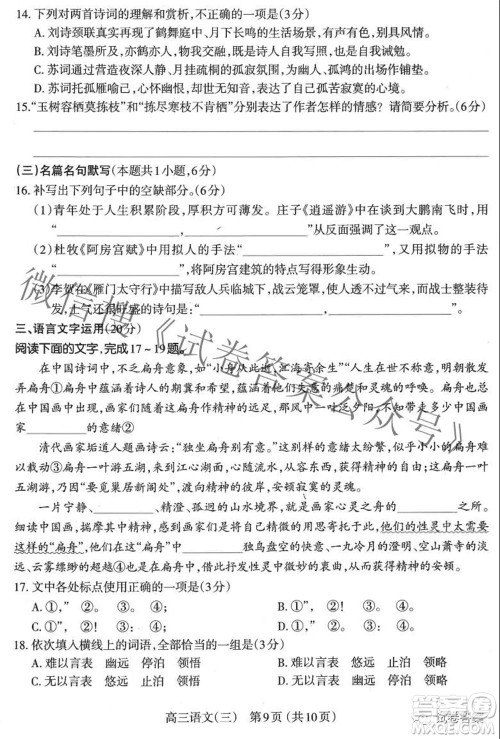 14. 下列对两首诗词的理解和赏析,不正确的一项是(3分)
A. 刘诗颈联真实再现了鹤舞庭中、月下长鸣的生活状况,也是诗人自由洒脱的写照。
B. 刘诗笔墨所及,亦鹤亦人,物我交融,既表现了鹤的孤独清高,也体现了诗人情怀。
C. 苏词上片营造夜深人静、月挂疏桐的孤寂氛围,为幽人、孤鸿的出场作铺垫。
D. 苏词托孤雁喻志,心已恨而无人省,表达了自己孤苦寂寞的心境。
15. “玉树容栖莫拣枝”和“拣尽寒枝不肯栖”分别表达了作者怎样的情感?请简要分析。(6分)
(三)名篇名句默写(本题共1小题,6分)
16. 补写出下列句子中的空缺部分。(6分)
(1)青年处于人生积累阶段,厚积方可薄发。庄子《逍遥游》中谈到大鹏南飞时,用
“____,____”从反面强调了这一观点。
(2)杜牧《阿房宫赋》中用拟人的手法“____”,又用拟物的手法
“____”,将阿房宫建筑的特点写得形象生动。
(3)李贺在《雁门太守行》中描写敌人兵临城下,使人透不过气来,而战士整装待
发、士气依然旺盛的诗句是:“____,____”。
三、语言文字运用(20分)
阅读下面的文字,完成17~19题。
在中国诗词中,不乏扁舟意象,如“小舟从此逝,江海寄余生”“人生在世不称意,明朝散发
弄扁舟①扁舟中蕴涵着诗人的期冀和希望;在中国绘画中,扁舟隐含着画家的生命慨叹
和灵魂寄寓,国画家常常通过扁舟这样的精神情感载体,传达失意的悲慨与灵魂的觉解。
国画中的扁舟大都伴随着这种精神情结,那风中的一叶扁舟,那一泛夕阳,带着多少中国画
家____的意绪②
清代画家垢道人题画云:“独坐扁舟思去来。”他的这种意绪太纷繁,似乎小小的扁舟难
以载动③扁舟一叶游五湖,或来到江心湖心____精神,以此获得精神的自由,扁舟一叶游
五湖游,或因为“要觅巢居新阁处”,以此安顿寂寞的灵魂。
一片宁静、____、精澄、孤迥的山水境界,就是画家心灵之舟的____之所。
细读中国画,揣摩其中的精神内涵,我们能够____到扁舟之意,他们的性灵中太需要
这样的“扁舟”,他们在这“扁舟”中____独鸟盘空的忧伤、一九冷月的幽静、空山萧寺的淡
远、云雾缥缈的超越④也在扁舟中,借此抒发性灵中微妙的哀婉,获得精神的安顿。
17. 文中各处标点使用正确的一项是(3分)
18. 依次填入横线上的词语,全部恰当的一组是(3分)
A. 难以言表 幽远 停泊 领悟
B. 难以言表 悠远 停泊 领悟
C. 无以言表 悠远 停泊 领略
D. 无以言表 幽远 停泊 领略
高三语文(三) 第9页(共10页)
微信搜《试卷答案公众号》